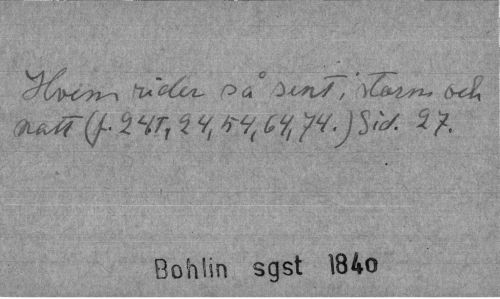 Hvem rider så sent i storm och
natt (f. 24T, 24, 54, 64, 74.) Sid. 27.
Bohlin sgst 1840